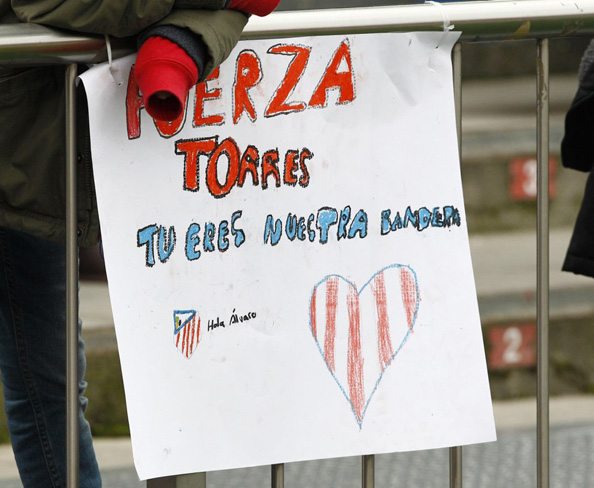 FUERZA
TORRES
TU ERES NUESTRA BANDERA
Hola Álvaro
3
2